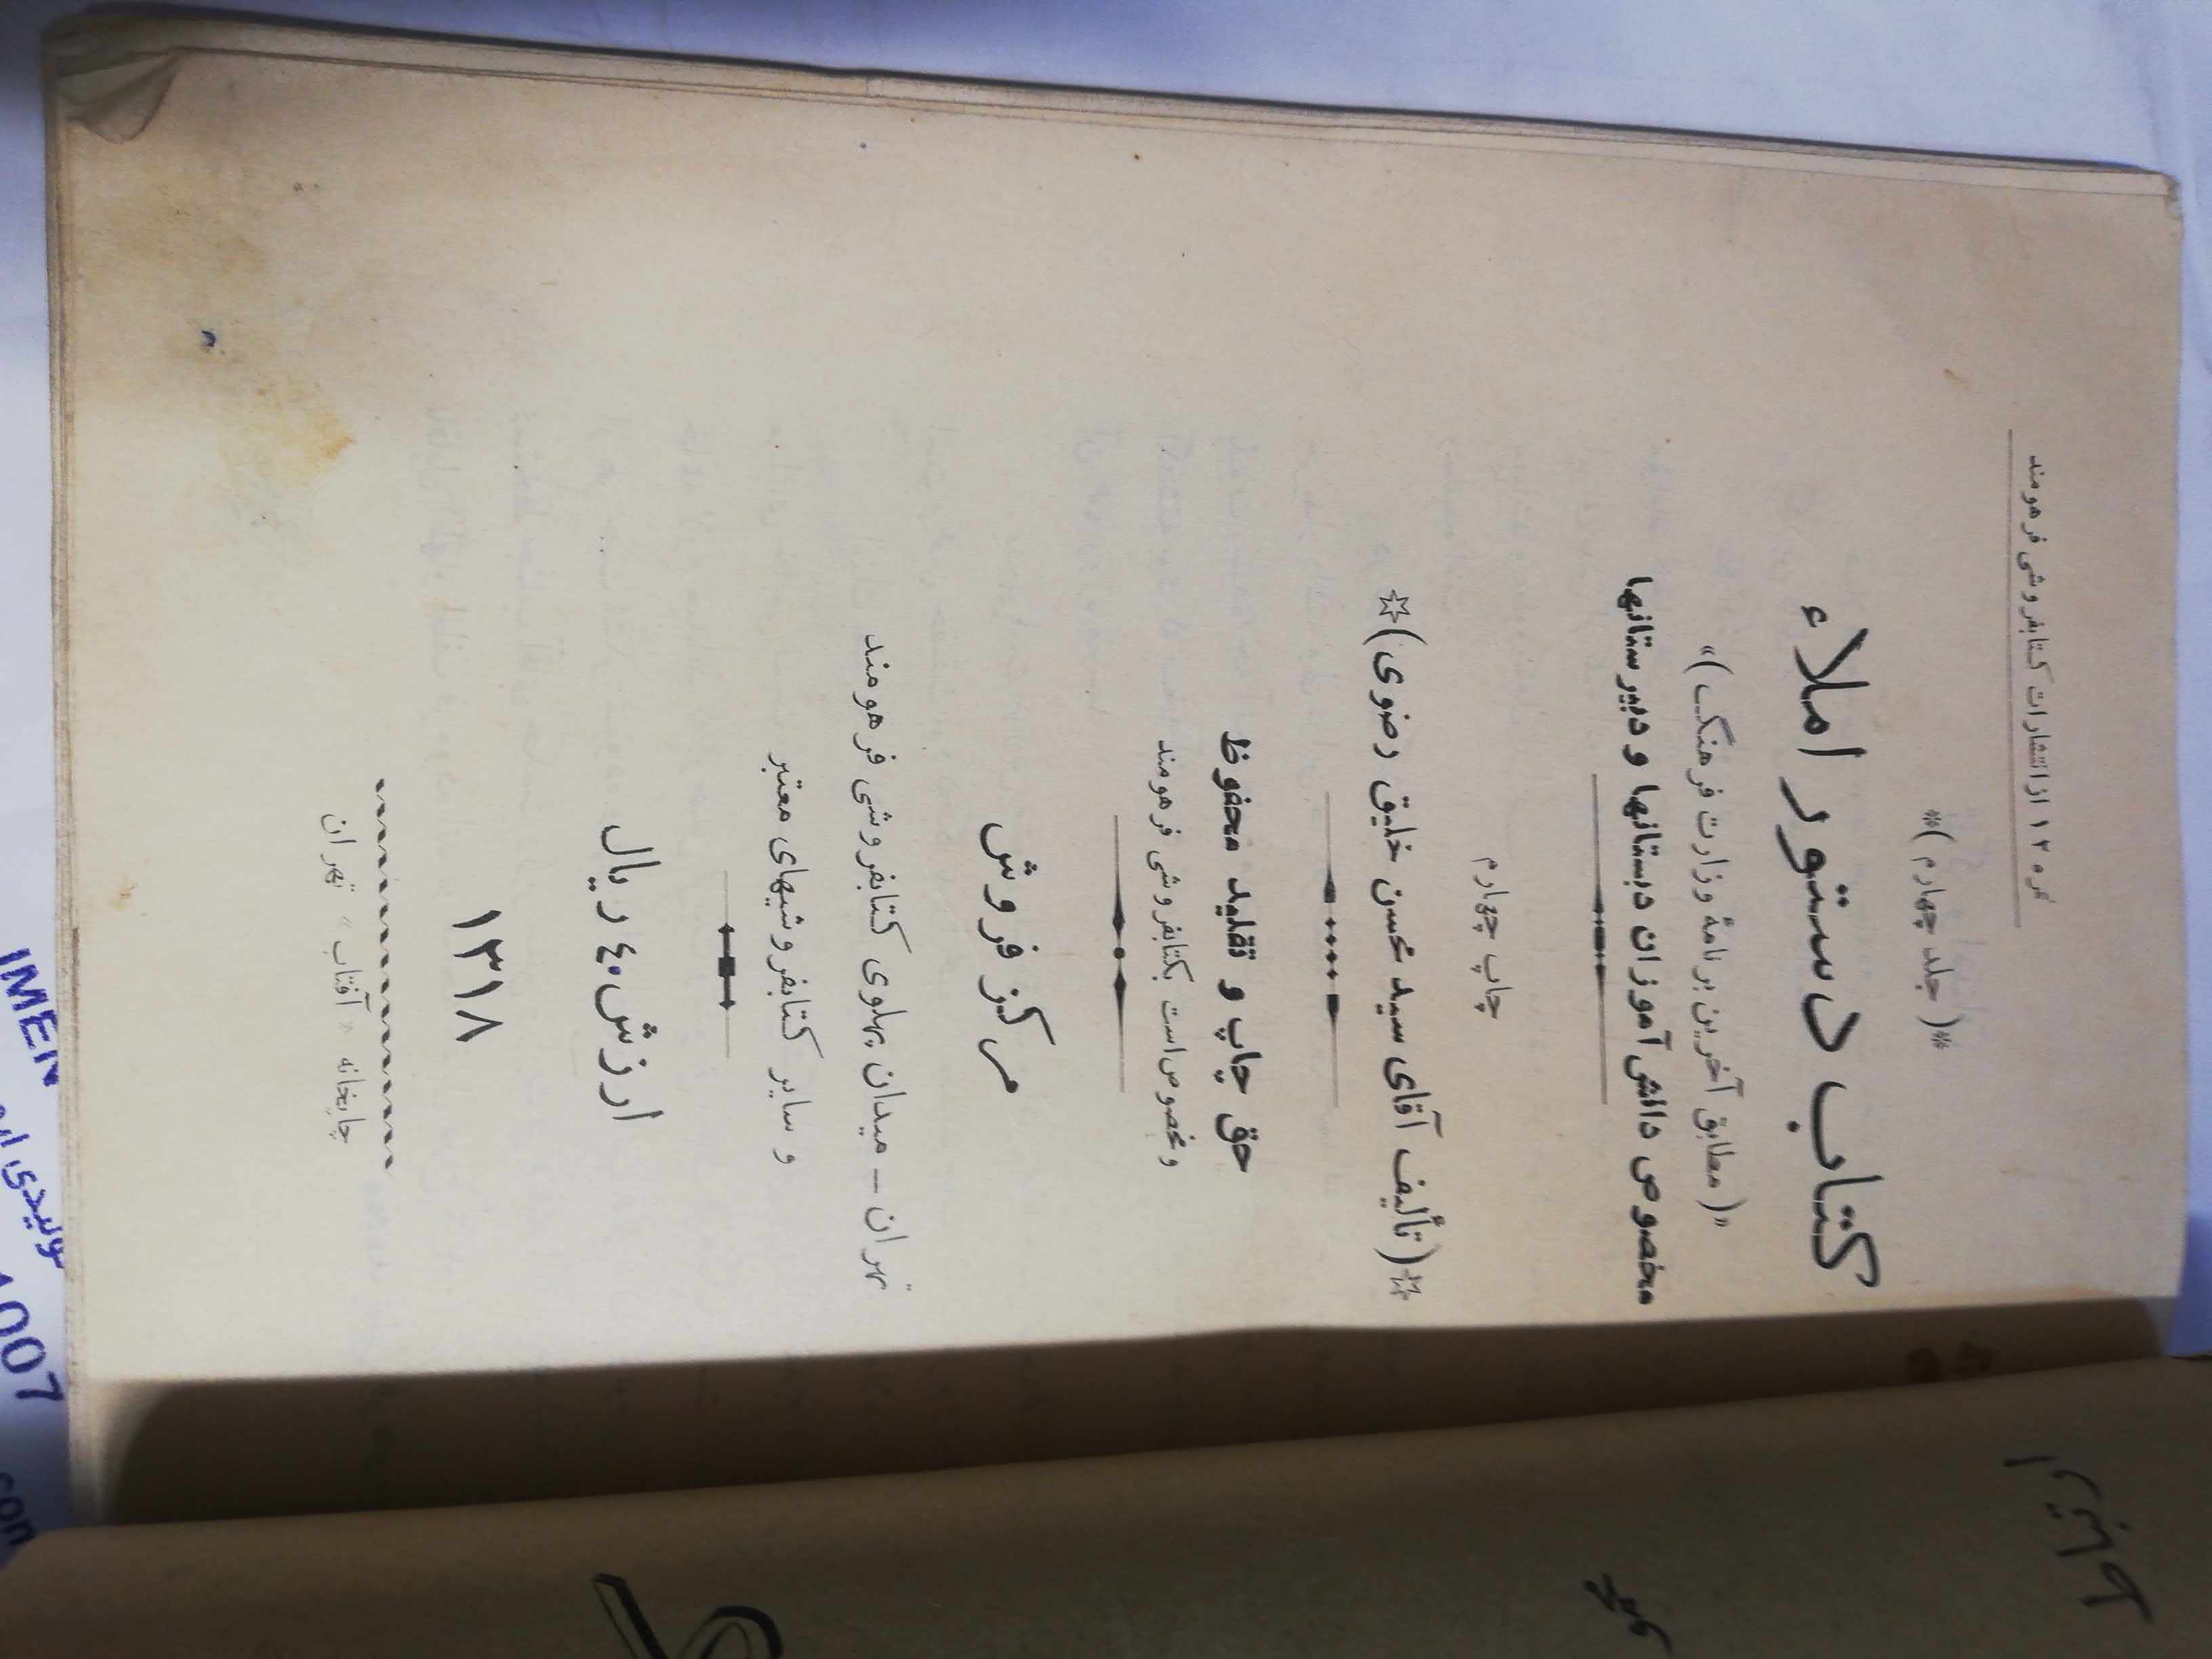 نمره ۱۲ از انتشارات کتابفروشی فرهومند
*( جلد چهارم )*
کتاب دستور املاء
«( مطابق آخرین برنامهٔ وزارت فرهنگ )»
مخصوص دانش آموزان دبستانها و دبیرستانها
چاپ چهارم
☆( تألیف آقای سید محسن خلیق رضوی )☆
حق چاپ و تقلید محفوظ
و مخصوص است بکتابفروشی فرهومند
مرکز فروش
تهران – میدان پهلوی کتابفروشی فرهومند
و سایر کتابفروشیهای معتبر
ارزش ۴۰ ریال
۱۳۱۸
چاپخانه « آفتاب » تهران
IMEN
تولیدی
1007